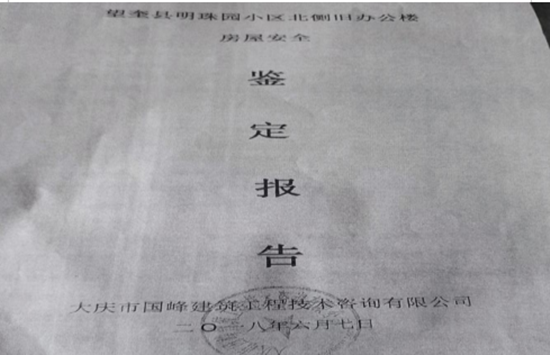 望奎县明珠园小区北侧旧办公楼
房屋安全
鉴
定
报
告
大庆市国峰建筑工程技术咨询有限公司
二〇一八年六月七日